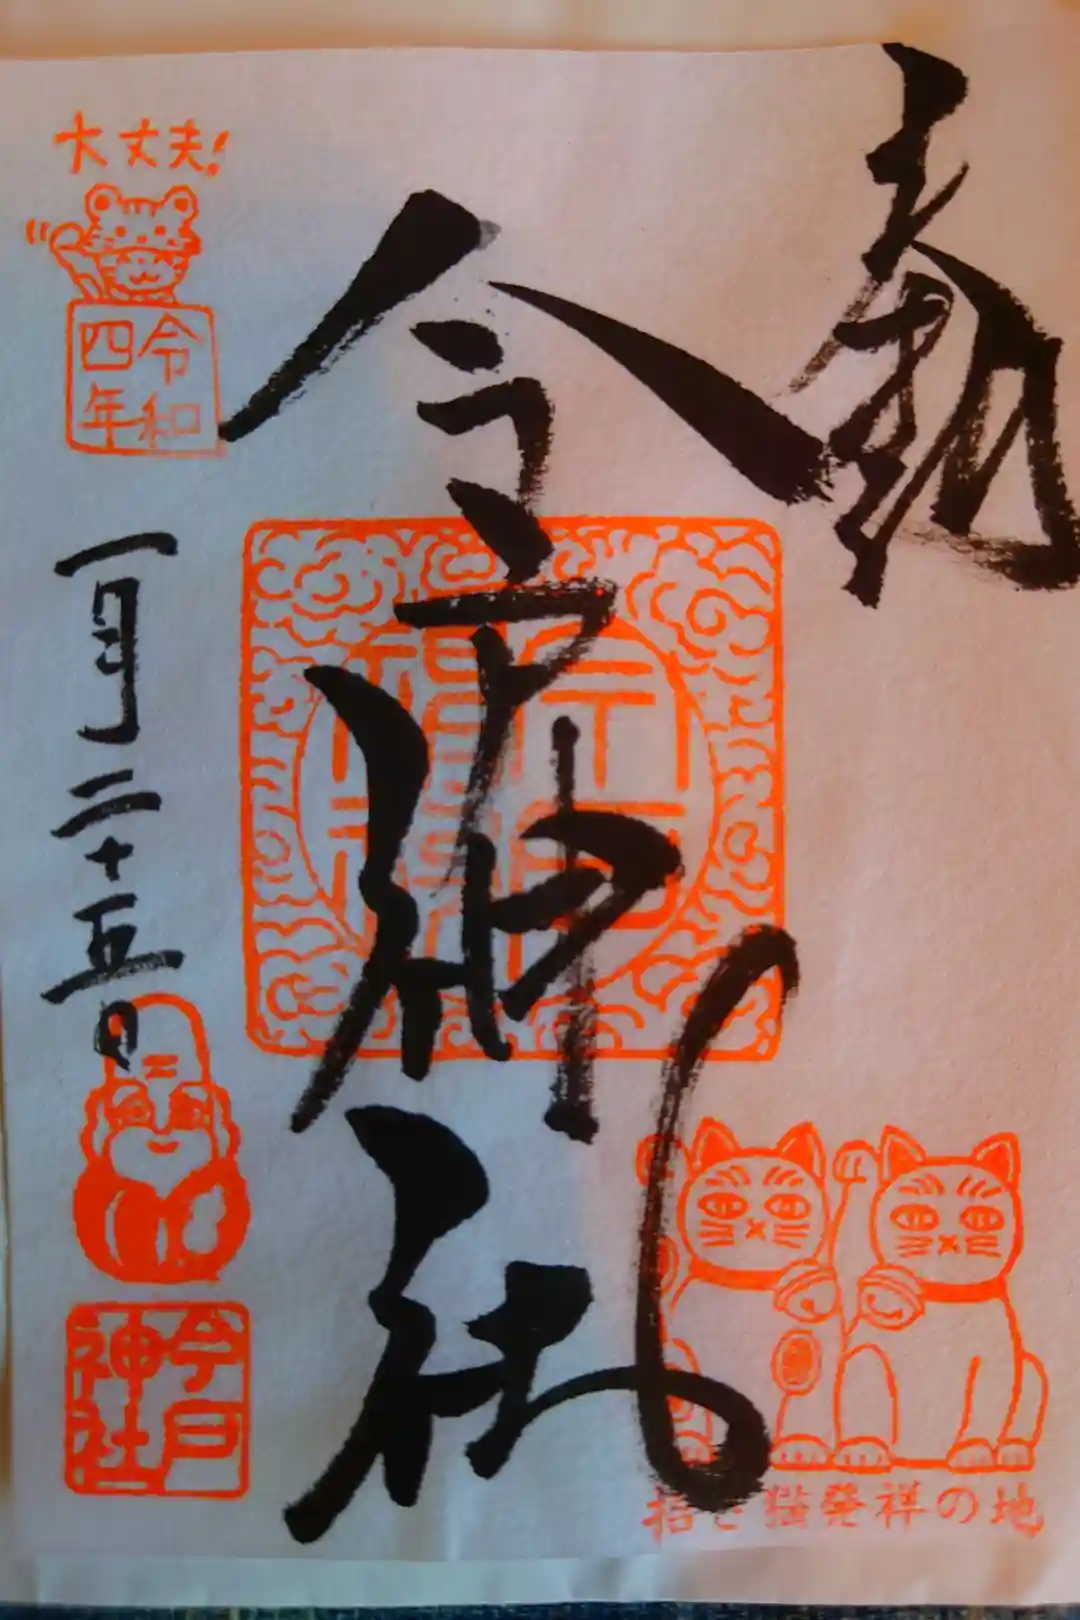 奉拝
今戸神社
大丈夫!
令和
四年
一月二十五日
今戸
神社
招き猫発祥の地